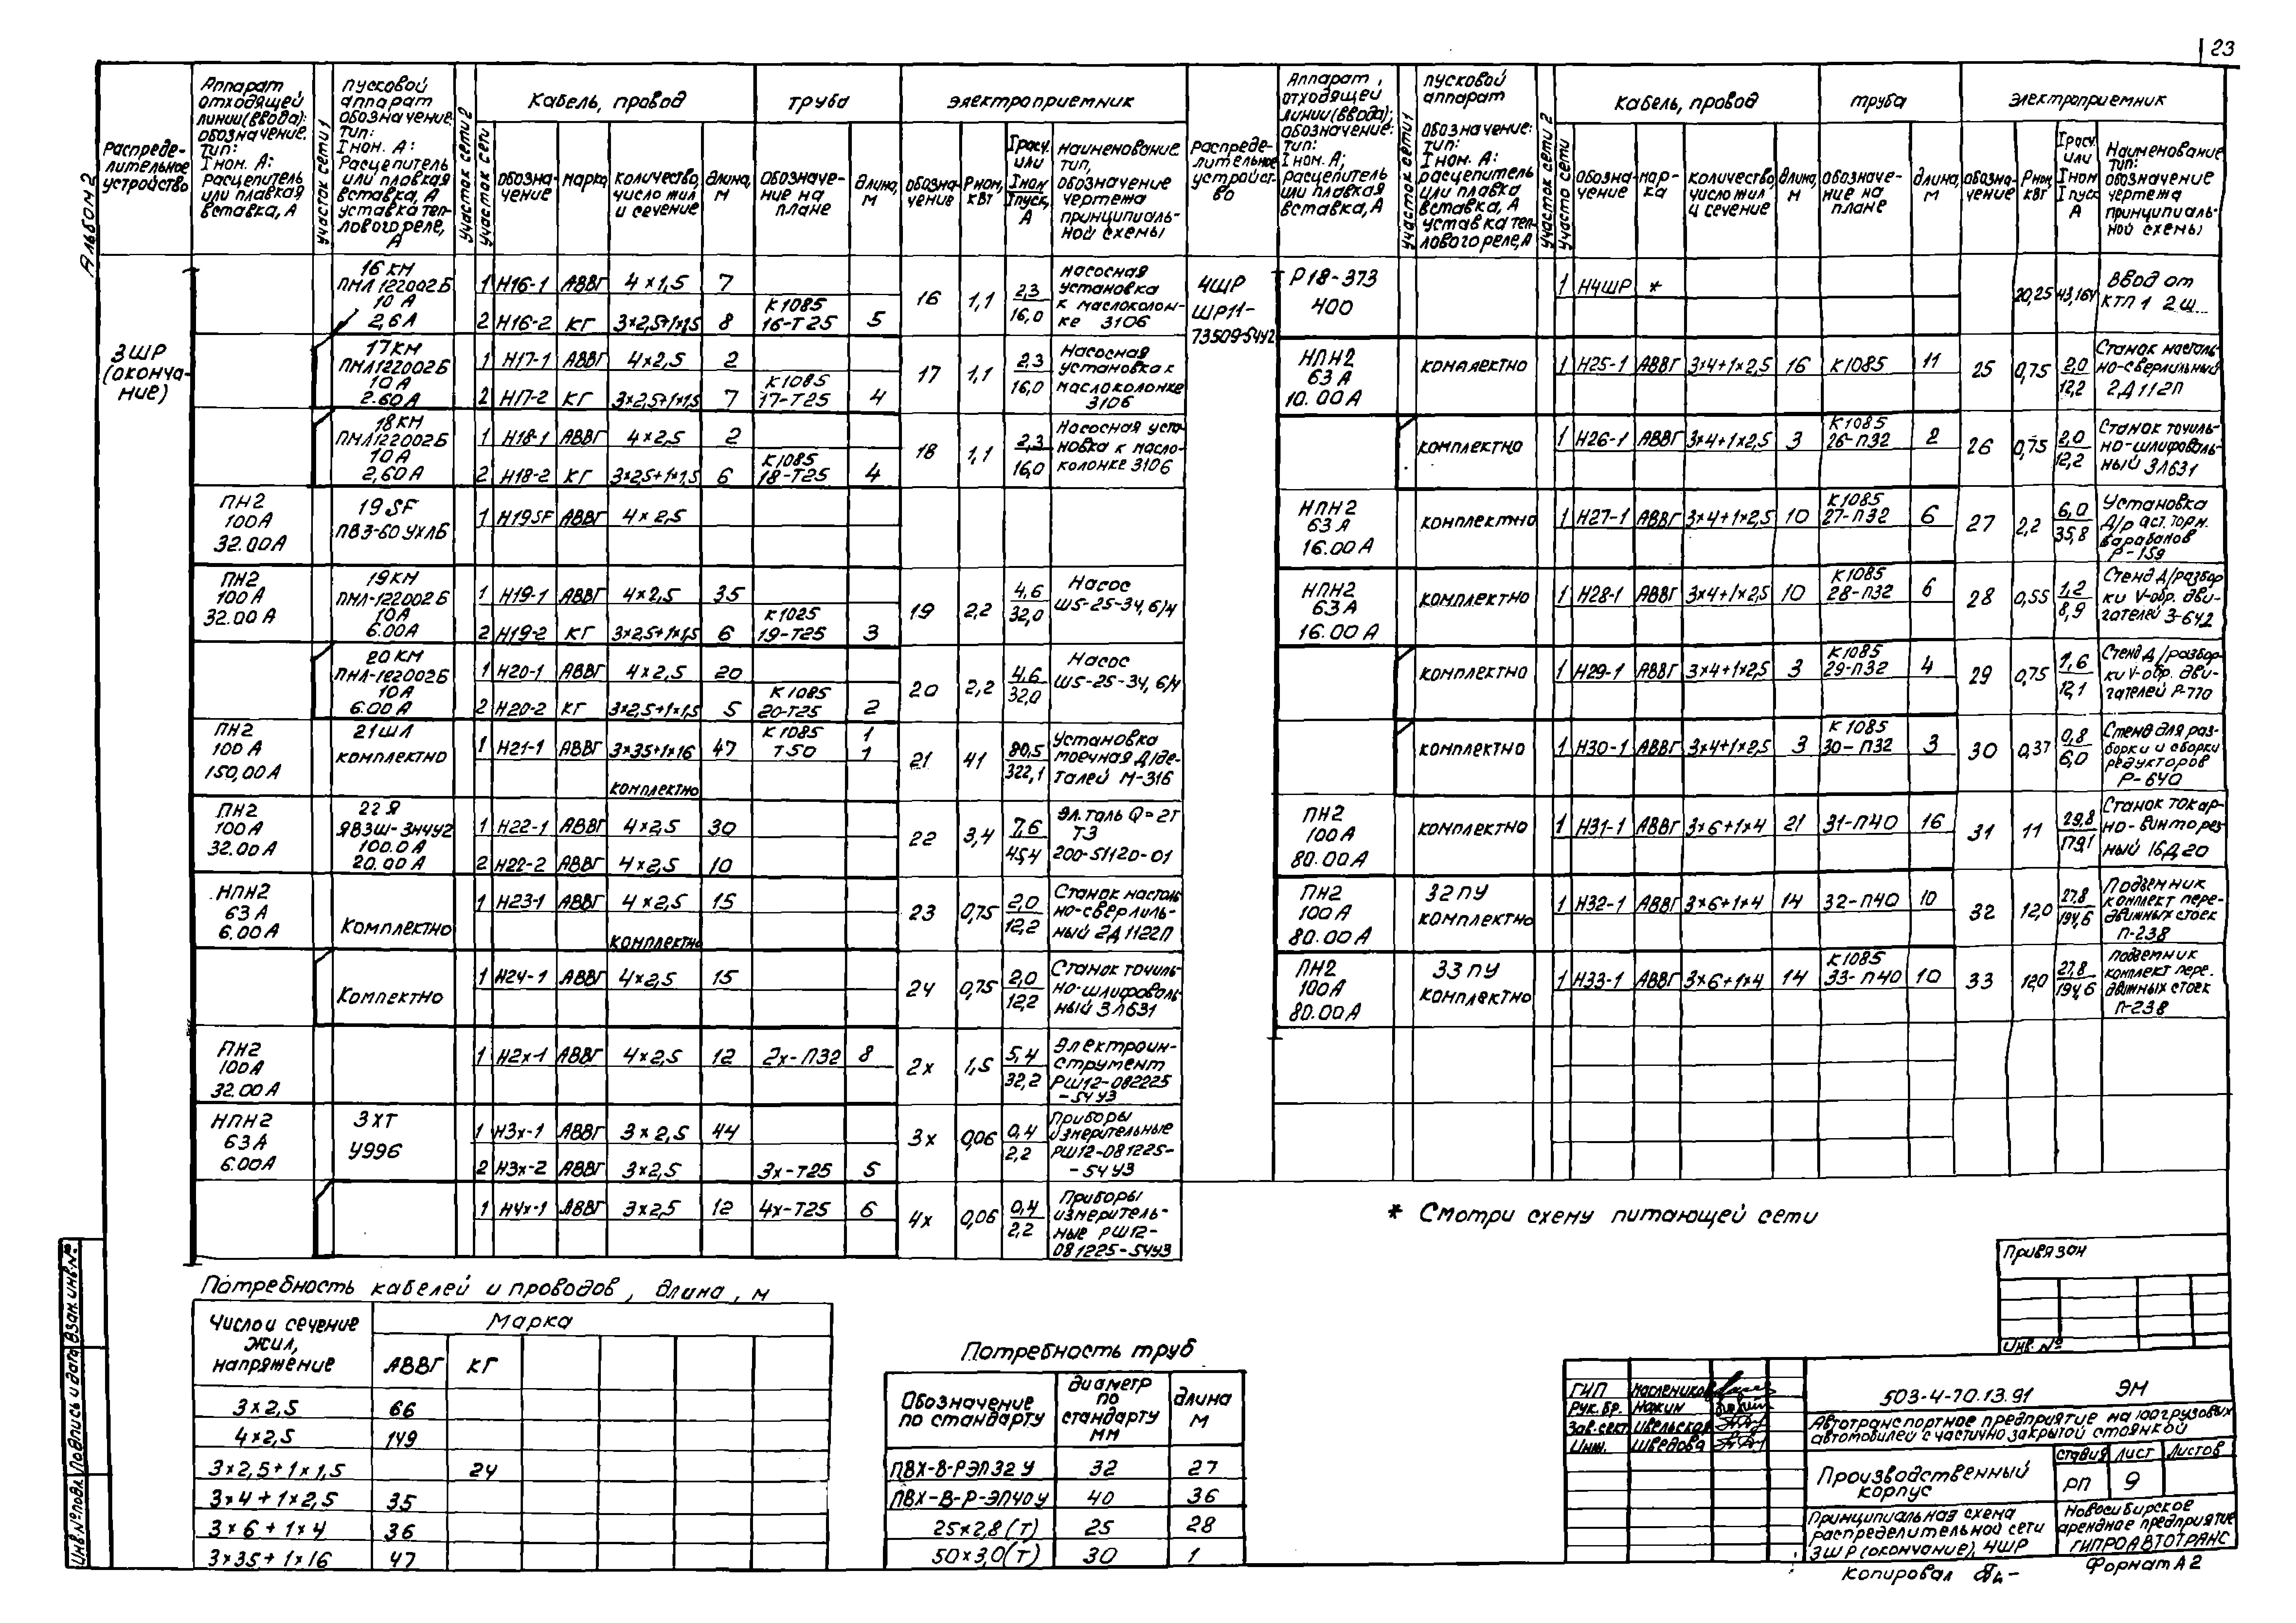 23
Альбом 2
Распреде-
лительное
устройство
Аппарат
отходящей
линии(ввода):
обозначение.
тип:
Iном. А:
Расцепитель
или плавкая
вставка, А
участок сети 1
пусковой
аппарат
обозначение.
тип:
Iном. А:
Расцепитель
или плавкая
вставка, А
уставка теп-
лового реле,
А
участок сети 2
участок сети
Кабель, провод
обозна-
чение
марка
количество,
число жил
и сечение
длина,
м
труба
обозначе-
ние на
плане
длина,
м
электроприемник
обозна-
чение
Рном,
кВт
Iрасч.
или
Iном
Iпуск,
А
наименование
тип,
обозначение
чертежа
принципиаль-
ной схемы
3ШР
(оконча-
ние)
16 КМ
ПМЛ 122002Б
10 А
2,6 А
1 Н16-1 АВВГ 4×1,5 7
2 Н16-2 КГ 3×2,5+1×1,5 8
К1085
16-Т25 5
16 1,1 2,3
16,0
насосная
установка
к маслоколон-
ке 3106
17 КМ
ПМЛ122002Б
10 А
2.60 А
1 Н17-1 АВВГ 4×2,5 2
2 Н17-2 КГ 3×2,5+1×1,5 7
К1085
17-Т25 4
17 1,1 2,3
16,0
Насосная
установка к
маслоколонке
3106
18 КМ
ПМЛ122002Б
10А
2,60 А
1 Н18-1 АВВГ 4×2,5 2
2 Н18-2 КГ 3×2,5+1×1,5 6
К1085
18-Т25 4
18 1,1 2,3
16,0
Насосная уста-
новка к масло-
колонке 3106
ПН2
100А
32.00А
19 SF
ПВ3-60 УХЛБ
1 Н19SF АВВГ 4×2,5
ПН2
100 А
32.00 А
19 КМ
ПМЛ-122002Б
10А
6.00А
1 Н19-1 АВВГ 4×2,5 35
2 Н19-2 КГ 3×2,5+1×1,5 6
К1025
19-Т25 3
19 2,2 4,6
32,0
Насос
Ш5-25-34,6/4
20 КМ
ПМЛ-122002Б
10 А
6.00 А
1 Н20-1 АВВГ 4×2,5 20
2 Н20-2 КГ 3×2,5+1×1,5 5
К1085
20-Т25 2
20 2,2 4,6
32,0
Насос
Ш5-25-34,6/4
ПН2
100 А
150,00 А
21 ШЛ
комплектно
1 Н21-1 АВВГ 3×35+1×16 47
комплектно
К1085 1
Т50 1
21 41 80,5
322,1
Установка
моечная д/де-
талей М-316
ПН2
100 А
32.00 А
22 Я
ЯВЗШ-3НЧУ2
100.0 А
20.00 А
1 Н22-1 АВВГ 4×2,5 30
2 Н22-2 АВВГ 4×2,5 10
22 3,4 7,6
45,4
Эл.таль Q=2т
ТЗ
200-51120-01
НПН2
63 А
6.00 А
Комплектно
1 Н23-1 АВВГ 4×2,5 15
комплектно
23 0,75 2,0
12,2
Станок настоль
но-сверлиль-
ный 2Д1122П
Комплектно
1 Н24-1 АВВГ 4×2,5 15
24 0,75 2,0
12,2
Станок точиль-
но-шлифоваль
ный 3Л631
ПН2
100А
32.00 А
1 Н2х-1 АВВГ 4×2,5 12 2х-П32 8
2х 1,5 5,4
32,2
Электроин-
струмент
РШ12-082225
-54У3
НПН2
63 А
6.00А
3 ХТ
У996
1 Н3х-1 АВВГ 3×2,5 44
2 Н3х-2 АВВГ 3×2,5 3х-Т25 5
3х 0,06 0,4
2,2
Приборы
измерительные
РШ12-081225-
-54У3
1 Н4х-1 АВВГ 3×2,5 12 4х-Т25 6
4х 0,06 0,4
2,2
Приборы
измеритель-
ные РШ12-
081225-54У3
Распреде-
лительное
устройст-
во
Аппарат,
отходящей
линии(ввода);
обозначение:
тип:
Iном. А;
расцепитель
или плавкая
вставка, А
участок сети 1
пусковой
аппарат
обозначение:
тип:
Iном. А:
расцепитель
или плавка
вставка, А
уставка теп-
лового реле, А
участок сети 2
участо сети
Кабель, провод
обозна-
чение
мар-
ка
количество,
число жил
и сечение
длина,
м
труба
обозначе-
ние на
плане
длина,
м
Электроприемник
обозна-
чение
Рном,
кВт
Iрасч.
или
Iном
Iпуск
А
Наименование
тип:
обозначение
чертежа
принципиаль-
ной схемы
4ШР
ШР11-
73509-54У2
Р18-373
400
1 Н4ШР *
20,25 43,164
Ввод от
КТП 1 2щ
НПН2
63 А
10.00 А
комплектно
1 Н25-1 АВВГ 3×4+1×2,5 16 К1085 11
25 0,75 2,0
12,2
Станок настоль-
но-сверлильный
2Д112П
комплектно
1 Н26-1 АВВГ 3×4+1×2,5 3 К1085
26-П32 2
26 0,75 2,0
12,2
Станок точиль-
но-шлифоваль-
ный 3Л631
НПН2
63 А
16.00 А
комплектно
1 Н27-1 АВВГ 3×4+1×2,5 10 К1085
27-П32 6
27 2,2 6,0
35,8
Установка
д/раст. торм.
барабанов
Р-159
НПН2
63 А
16.00 А
комплектно
1 Н28-1 АВВГ 3×4+1×2,5 10 К1085
28-П32 6
28 0,55 1,2
8,9
Стенд д/разбор
ки V-обр. дви-
гателей 3-642
комплектно
1 Н29-1 АВВГ 3×4+1×2,5 3 К1085
29-П32 4
29 0,75 1,6
12,1
Стенд д/разбор-
ки V-обр. дви-
гателей Р-770
комплектно
1 Н30-1 АВВГ 3×4+1×2,5 3 К1085
30-П32 3
30 0,37 0,8
6,0
Стенд для раз-
борки и сборки
редукторов
Р-640
ПН2
100 А
80.00 А
комплектно
1 Н31-1 АВВГ 3×6+1×4 21 31-П40 16
31 11 29,8
179,1
Станок токар-
но-винторез
ный 16Д20
ПН2
100 А
80.00 А
32 ПУ
комплектно
1 Н32-1 АВВГ 3×6+1×4 14 32-П40 10
32 12,0 27,8
194,6
Подъемник
комплект пере-
движных стоек
П-238
ПН2
100А
80.00 А
33 ПУ
комплектно
1 Н33-1 АВВГ 3×6+1×4 14 К1085
33-П40 10
33 12,0 27,8
194,6
подъемник
комплект пере-
движных стоек
П-238
* Смотри схему питающей сети
Потребность кабелей и проводов, длина, м
Число и сечение
жил,
напряжение
Марка
АВВГ КГ
3×2,5 66
4×2,5 149
3×2,5+1×1,5 24
3×4+1×2,5 35
3×6+1×4 36
3×35+1×16 47
Потребность труб
Обозначение
по стандарту
диаметр
по
стандарту
мм
длина
м
ПВХ-В-РЭП32У 32 27
ПВХ-В-Р-ЭП40У 40 36
25×2,8(т) 25 28
50×3,0(т) 30 1
Привязан
Инв. №
ГИП Маслеников
Рук.бр. Нажин
Зав.сект Цвельской
Инж. Шведова
503-4-70.13.91 ЭМ
Автотранспортное предприятие на 100 грузовых
автомобилей с частично закрытой стоянкой
Производственный
корпус
стадия лист Листов
РП 9
Принципиальная схема
распределительной сети
3ШР(окончание), 4ШР
Новосибирское
арендное предприятие
ГИПРОАВТОТРАНС
Копировал
Формат А2
Инв.№подл. Подпись и дата Взам.инв.№